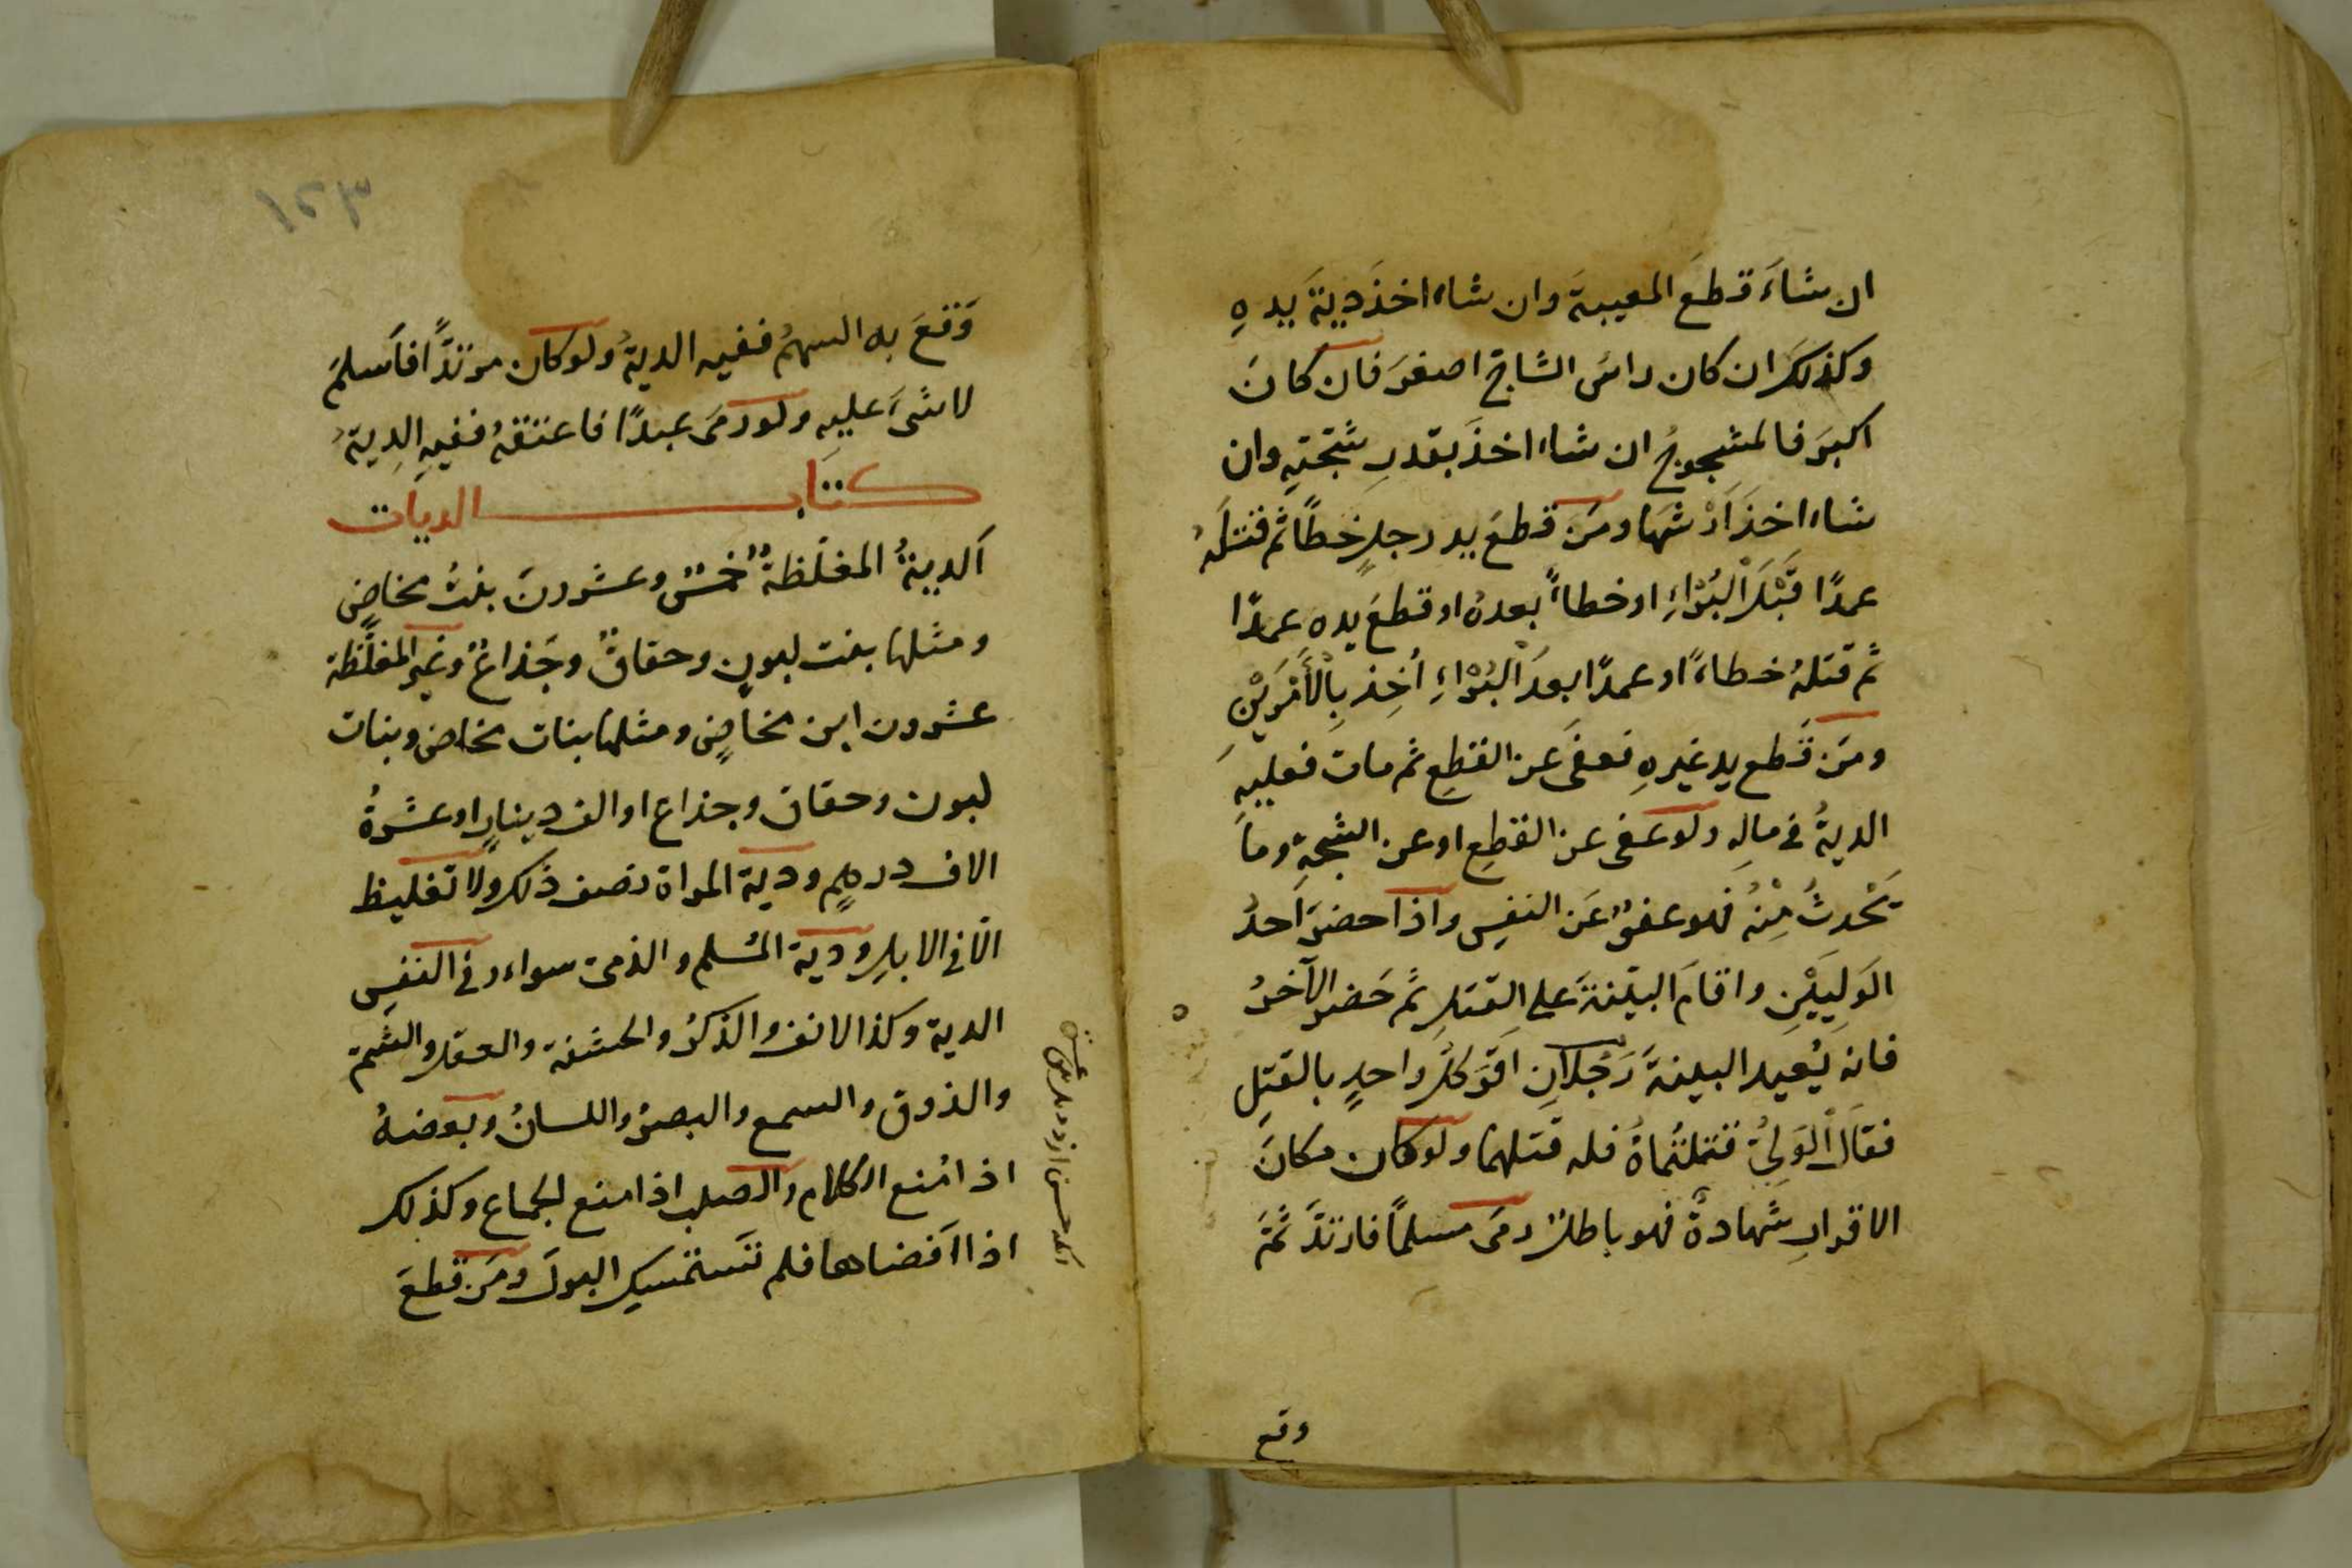 ان شاءَ قطعَ المعيبةَ وان شاء اخذَ ديةَ يدهِ
وكذلكَ ان كان راسُ الشاجّ اصغرَ فان كانَ
اكبرَ فالمشجوجُ ان شاء اخذَ بقدرِ شجّتِهِ وان
شاء اخذَ اَرْشهَا ومَن قطعَ يد رجلٍ خطأً ثم قتلَهُ
عمدًا قَبْلَ الْبُرْاءِ او خطاءً بعدهُ او قطعَ يده عمدًا
ثُم قتلهُ خطاءً او عمدًا بعدَ الْبُرْاءِ اُخِذ بِالْأَمْرَيْنِ
ومَن قَطع يد غيرهِ فعفَى عَن القطعِ ثم مات فعليهِ
الديةُ في مالِه ولو عفى عن القطعِ او عن الشجّةِ وما
يَحْدثُ مِنْهُ فهو عفوٌ عَن النفسِ واذا حضرَ اَحدُ
الوَلِيَيْنِ واقامَ البيّنةَ على القتلِ ثُم حَضر الآخرُ
فانه يُعيد البينةَ رَجُلانِ اَقَرّ كلُّ واحدٍ بالقتلِ
فقالَ الْوَلِيُّ قتلتُماهُ فله قتلهما ولو كان مكانَ
الاقرارِ شهادةٌ فهو باطلٌ رمَى مسلمًا فارتدَّ ثُمّ
وقع
١٢٣
وَقعَ به السهمُ ففيه الديةُ ولو كان مرتدًّا فاَسلمَ
لا شىَ عليهِ ولو رمَى عبدًا فاعتقهُ ففيهِ الدِيةُ
كتاب الديات
اَلديةُ المغلّظةُ خمسٌ وعشرونَ بنتُ مخاضٍ
ومثلها بنت لبونٍ وحقاقٌ وجَذاعٌ وغير المغلّظة
عشرون ابن مخاضٍ ومثلها بنات مخاض وبنات
لبون وحقاق وجذاع او الف دينارٍ او عشرةُ
الاف درهمٍ ودية المراة نصف ذلك ولا تغليظ
الّا في الابلِ ودية المُسلم والذمى سواء وفي النفسِ
الدية وكذا الانف والذكرُ والحشفة والعقل والشمّ
والذوق والسمع والبصرُ واللسانُ وبعضهُ
اذا مُنع الكلام والصلب اذا منع الجماع وكذلك
اذا اَفضاها فلم تَستمسِك البولَ ومَن قطعَ